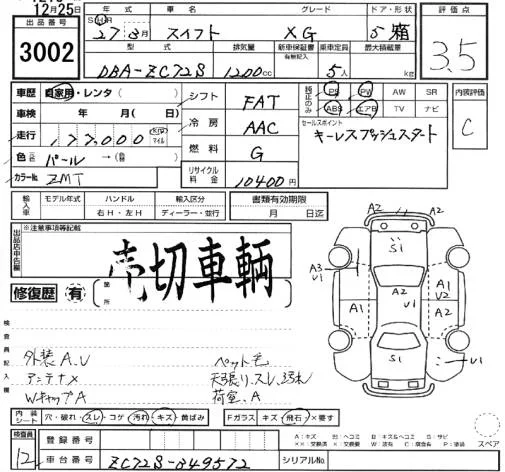 12月25日
出品番号 年式 車名 グレード ドア・形状 評価点
3002
SHR 27年8月 スイフト XG 5箱
3.5
型式 排気量 新車保証書 有無記入 乗車定員 最大積載量
DBA-ZC72S 1200cc 5人 kg
車歴 自家用・レンタ( ) シフト FAT 純正のみ PS PW AW SR 内装評価
車検 年 月( 日) ABS エアB TV ナビ C
走行 177,000 km マイル 冷房 AAC セールスポイント
キーレスプッシュスタート
色(元色) パール →(替色) 燃料 G
カラーNo. ZMT リサイクル料金 10400円
輸入車 モデル年式 ハンドル 右H・左H 輸入区分 ディーラー・並行 書類有効期限 月 日迄
出品店申告欄 ※注意事項等記載
売切車輌
修復歴 有 箇所
検査員記入欄
外装A.U ペット毛
アンテナ× 天張り.スレ.汚れ
Wキャップ A 荷室.A
A2 A2
S1
A3 U1 A2 U1 A1 U2
A1
S1 U1
A2
内装シート 穴・破れ・スレ・コゲ 汚れ・キズ・黄ばみ Fガラス キズ・飛石・×要す
スペア
検査員 12 登録番号
A:キズ U:ヘコミ B:キズ&ヘコミ S:サビ
××:交換済 X:要交換 W:補修跡 C:腐食 P:塗装
車台番号 ZC72S-349572 シリアルNo.